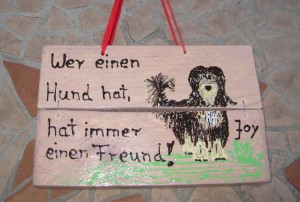 Wer einen
Hund hat,
hat immer
einen Freund!
Joy